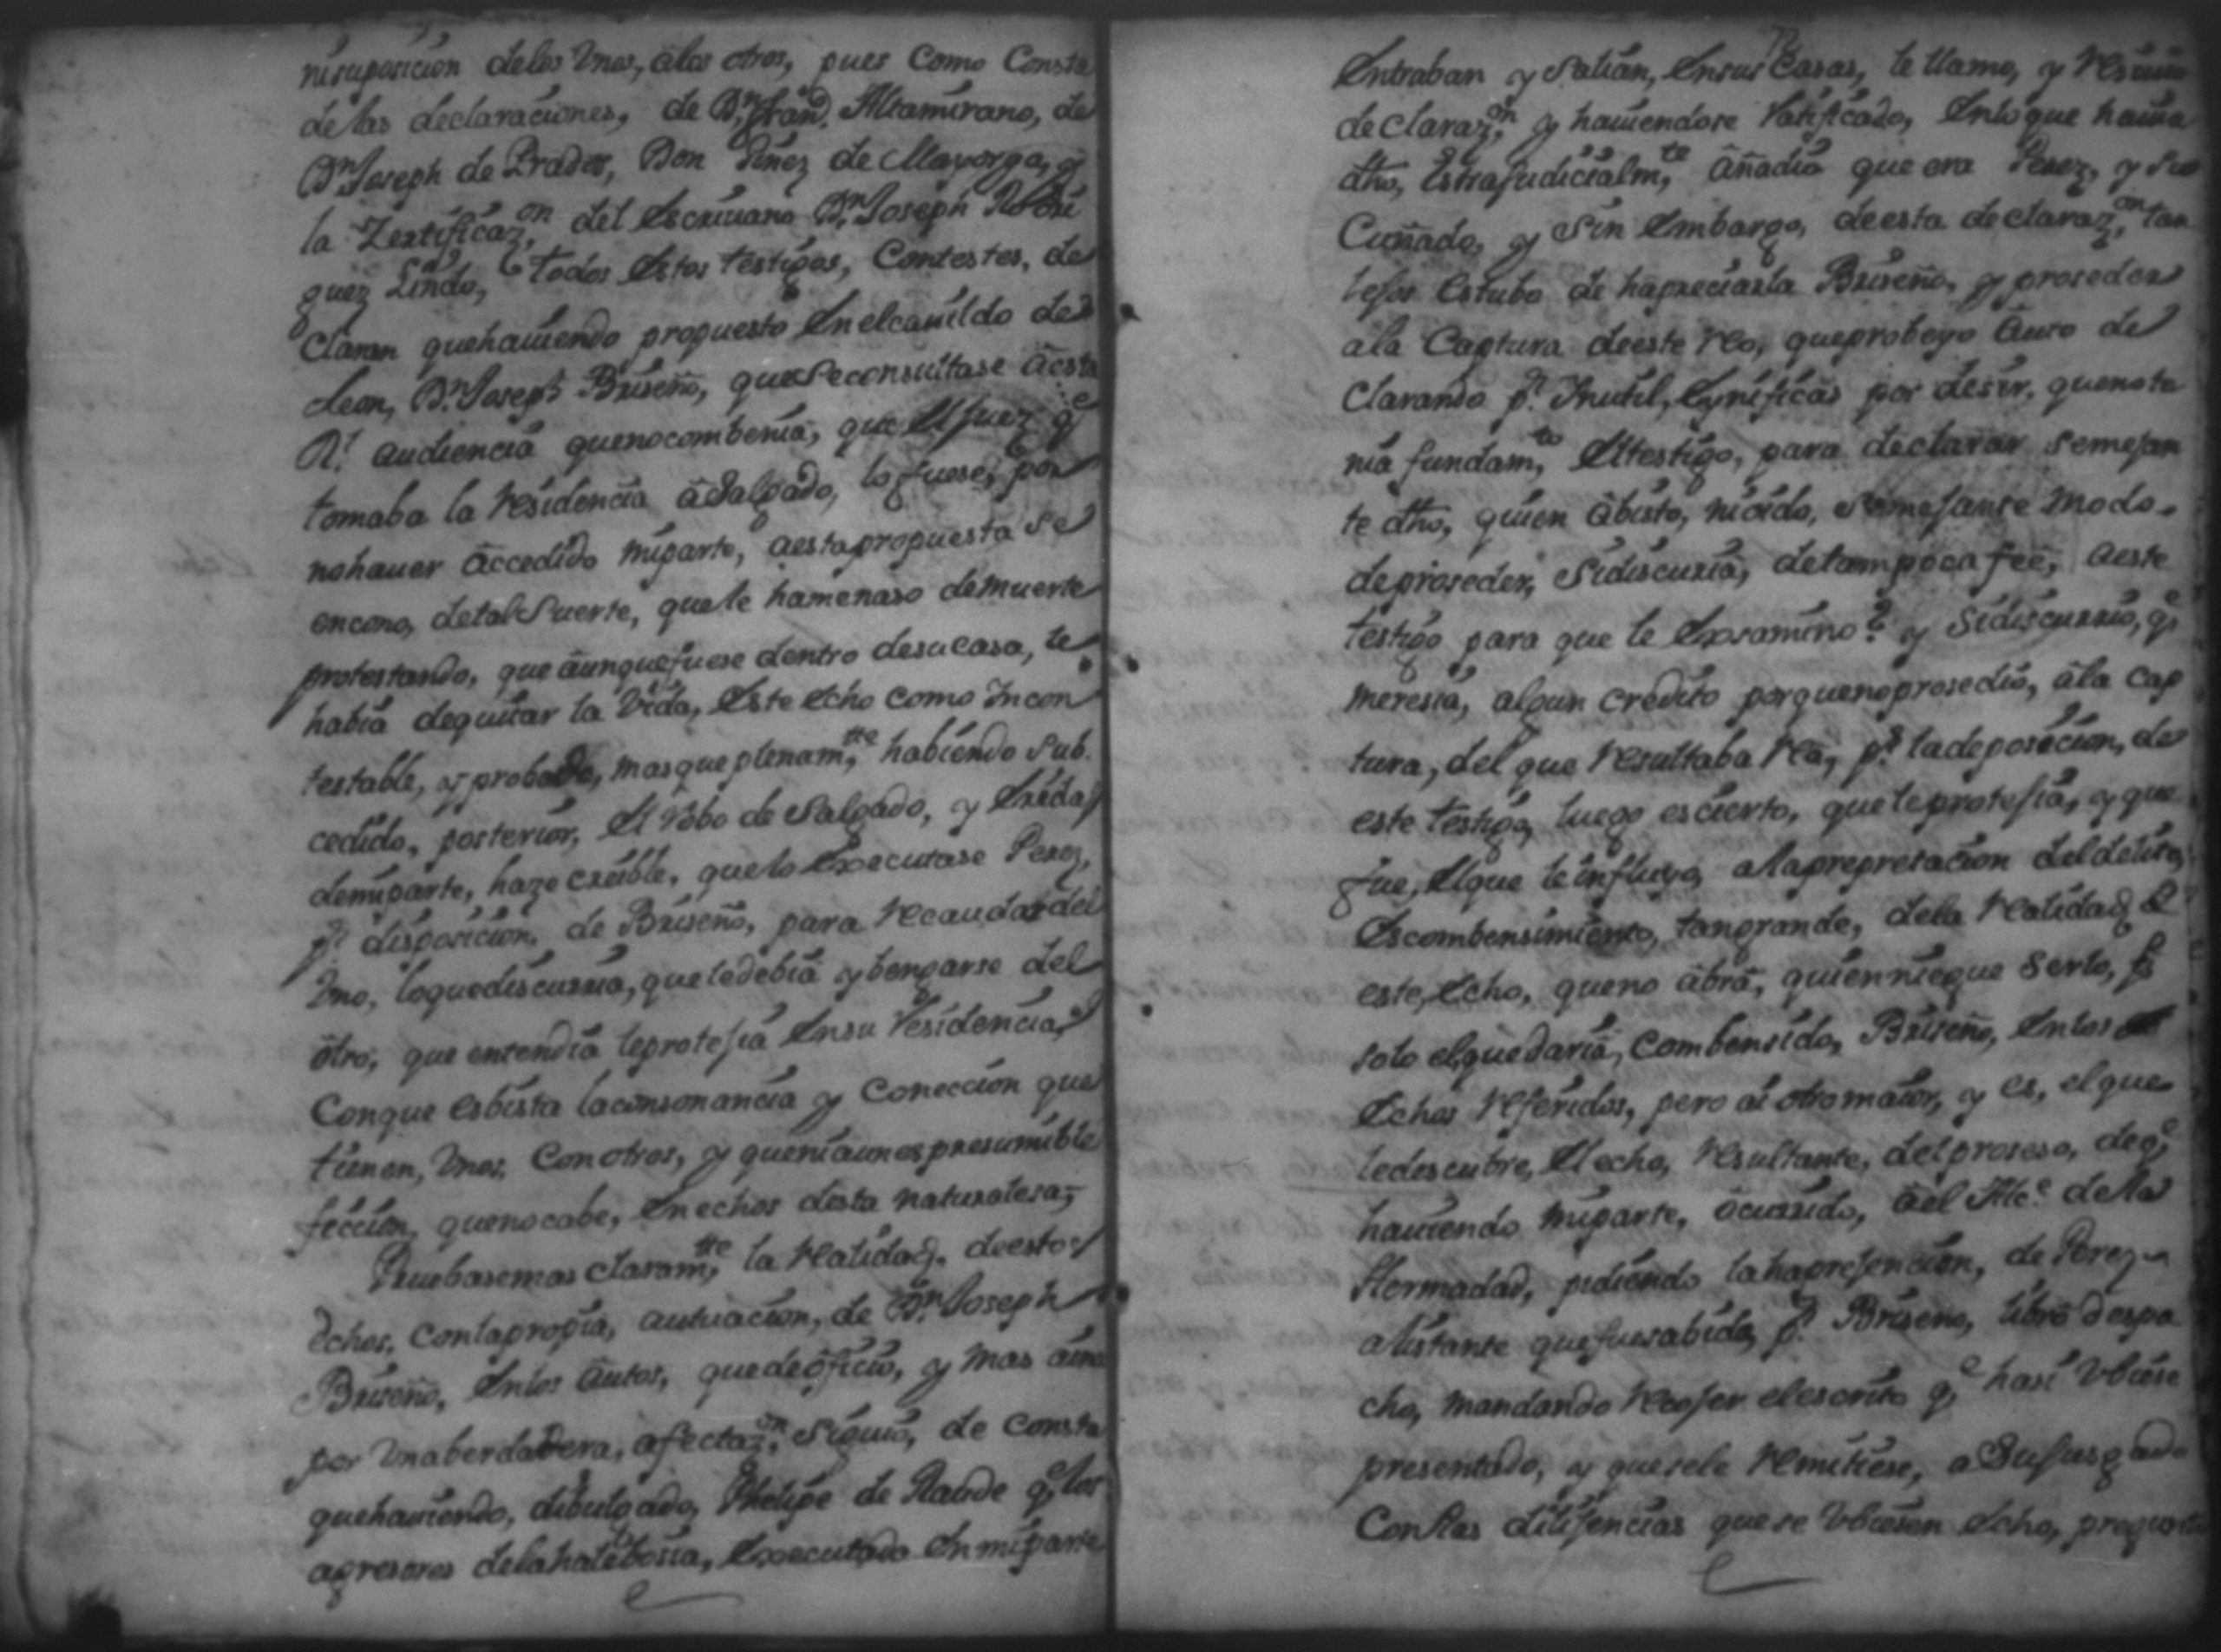 nisuposicion delos Vnos, âlos otros, pues Como Consta
de las declaraciones, de Dn. Fran.co Altamirano, de
Dn. Joseph de Prados, Don Ginez de Mayorga, y
la Zertificaz.on del Escriuano Dn. Joseph Rodri
guez Lindo, todos Estos testigos, Contestes, de
Claran quehauiendo propuesto Enelcauildo de
Leon, Dn. Joseph Briseño, queseconsultase âesta
Rl. audiencia quenocombenia, que El Juez qe
tomaba la Residencia âSalgado, lo fuese, por
nohauer âccedido miparte, aestapropuesta se
encono, detalSuerte, quele hamenaso demuerte
protestando, que âunquefuese dentro desucasa, le
habia dequitar la Vida, Este Echo como Incon
testable, y probado, masque plenam.te habiendo Sub
cedido, posterior, El Robo de Salgado, y Erida
demiparte, haze creible, quelo Executase Perez,
pr. disposicion, de Briseño, para Recaudardel
Vno, loquediscurria, queledebia ybengarse del
ôtro, que entendia leprotesia Ensu Residencia,
Conque esbista laconsonancia y Coneccion que
tienen, Vnos, Conotros, y queniaunespresumible
ficcion, quenocabe, Enechos desta naturalesa,
Pruebasemas claram.te la Realidad, deestos
Echos, Conlapropia, autuacion, de Dn. Joseph
Briseño, Enlos âutos, quedeôficio, y mas âun
por Vnaberdadera, afectaz.on Siguio, de Consta
quehauiendo, dibulgado, Phelipe de Raude qe los
agresores delahalebosia, Executado Enmiparte
Entraban y Salian, Ensus Casas, le llamo, y
declaraz.on y hauiendose Ratificado, Enloque hauia
dho, Estrajudicialm.te âñadio que era Perez, y su
Cuñado, y Sin Embargo, deesta declaraz.on tan
lejos Estubo de hapreciarla Briseño, y proseder
ala Captura deeste reo, queprobeyo âuto de
Clarando pr. Inutil, por desir, quenote
nia fundam.to Eltestigo, para declarar Semejan
te dho, quien âbisto, nioido, Semejante modo
deproseder, Sidiscuria, detampoca fee, aeste
testigo para que le Exsamino? y Sidiscurrio, qe
meresia, algun credito porquenoprosedio, âla Cap
tura, del que Resultaba Reo, pr. ladeposicion, de
este testigo, luego escierto, queleprotesia, y que
fue, Elque leinfluyo, alaprepretacion deldelito,
Escombensimiento, tangrande, dela Realidad de
este, Echo, queno âbrâ, quienniegue Serlo, ps
solo elquedaria, Combensido, Briseño, Enlos
Echos Referidos, pero ai otromaior, y es, elque
ledescubre, Elecho, Resultante, delproseso, deqe
hauiendo miparte, ôcurrido, âel Alc.e dela
Hermadad, pidiendo lahaprejencion, de Perez
alistante quefuesabido, pr. Briseno, libro despa
cho, mandando Recojer elescrito qe hasi Vbiese
presentado, y quesele Remitiese, aSujusgado
Conlas dilijencias quese Vbiesen Echo,